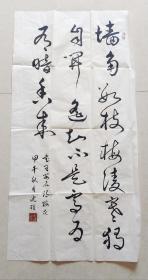 墙角数枝梅凌寒独
自开遥知不是雪为
有暗香来
甲午秋月